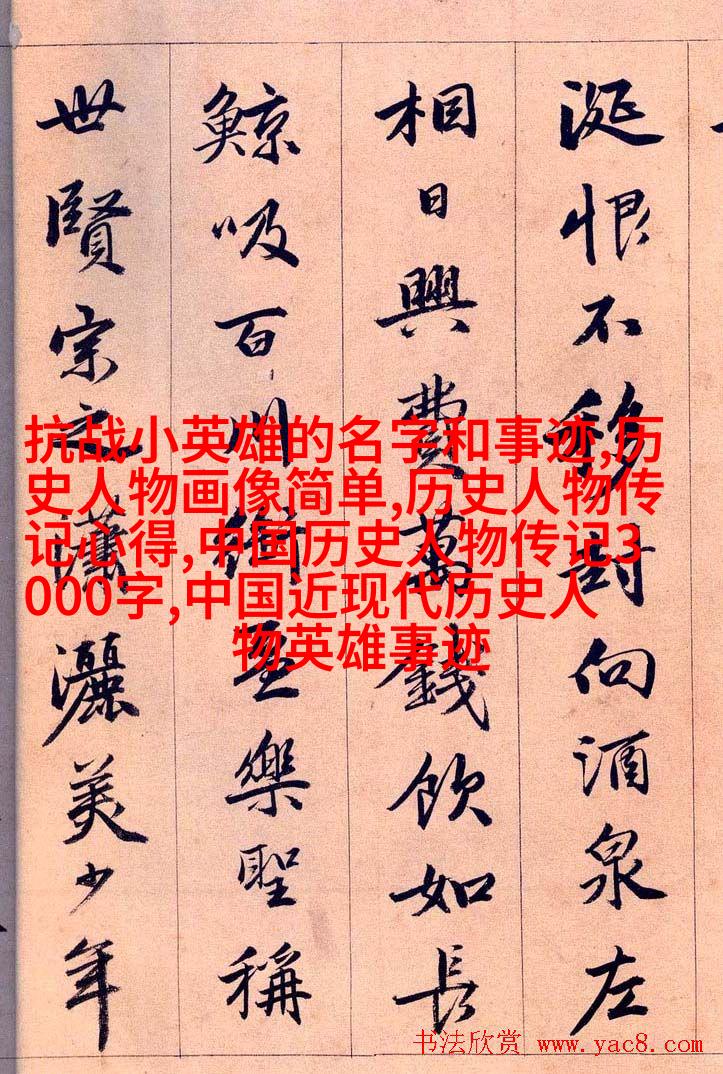 涎恨不移封向酒泉左
相日興費萬錢飲如長
鯨吸百川銜盃樂聖稱
世賢宗之瀟灑美少年
抗战小英雄的名字和事迹,历
史人物画像简单,历史人物传
记心得,中国历史人物传记3
000字,中国近现代历史人
物英雄事迹
书法欣赏 www.yac8.com